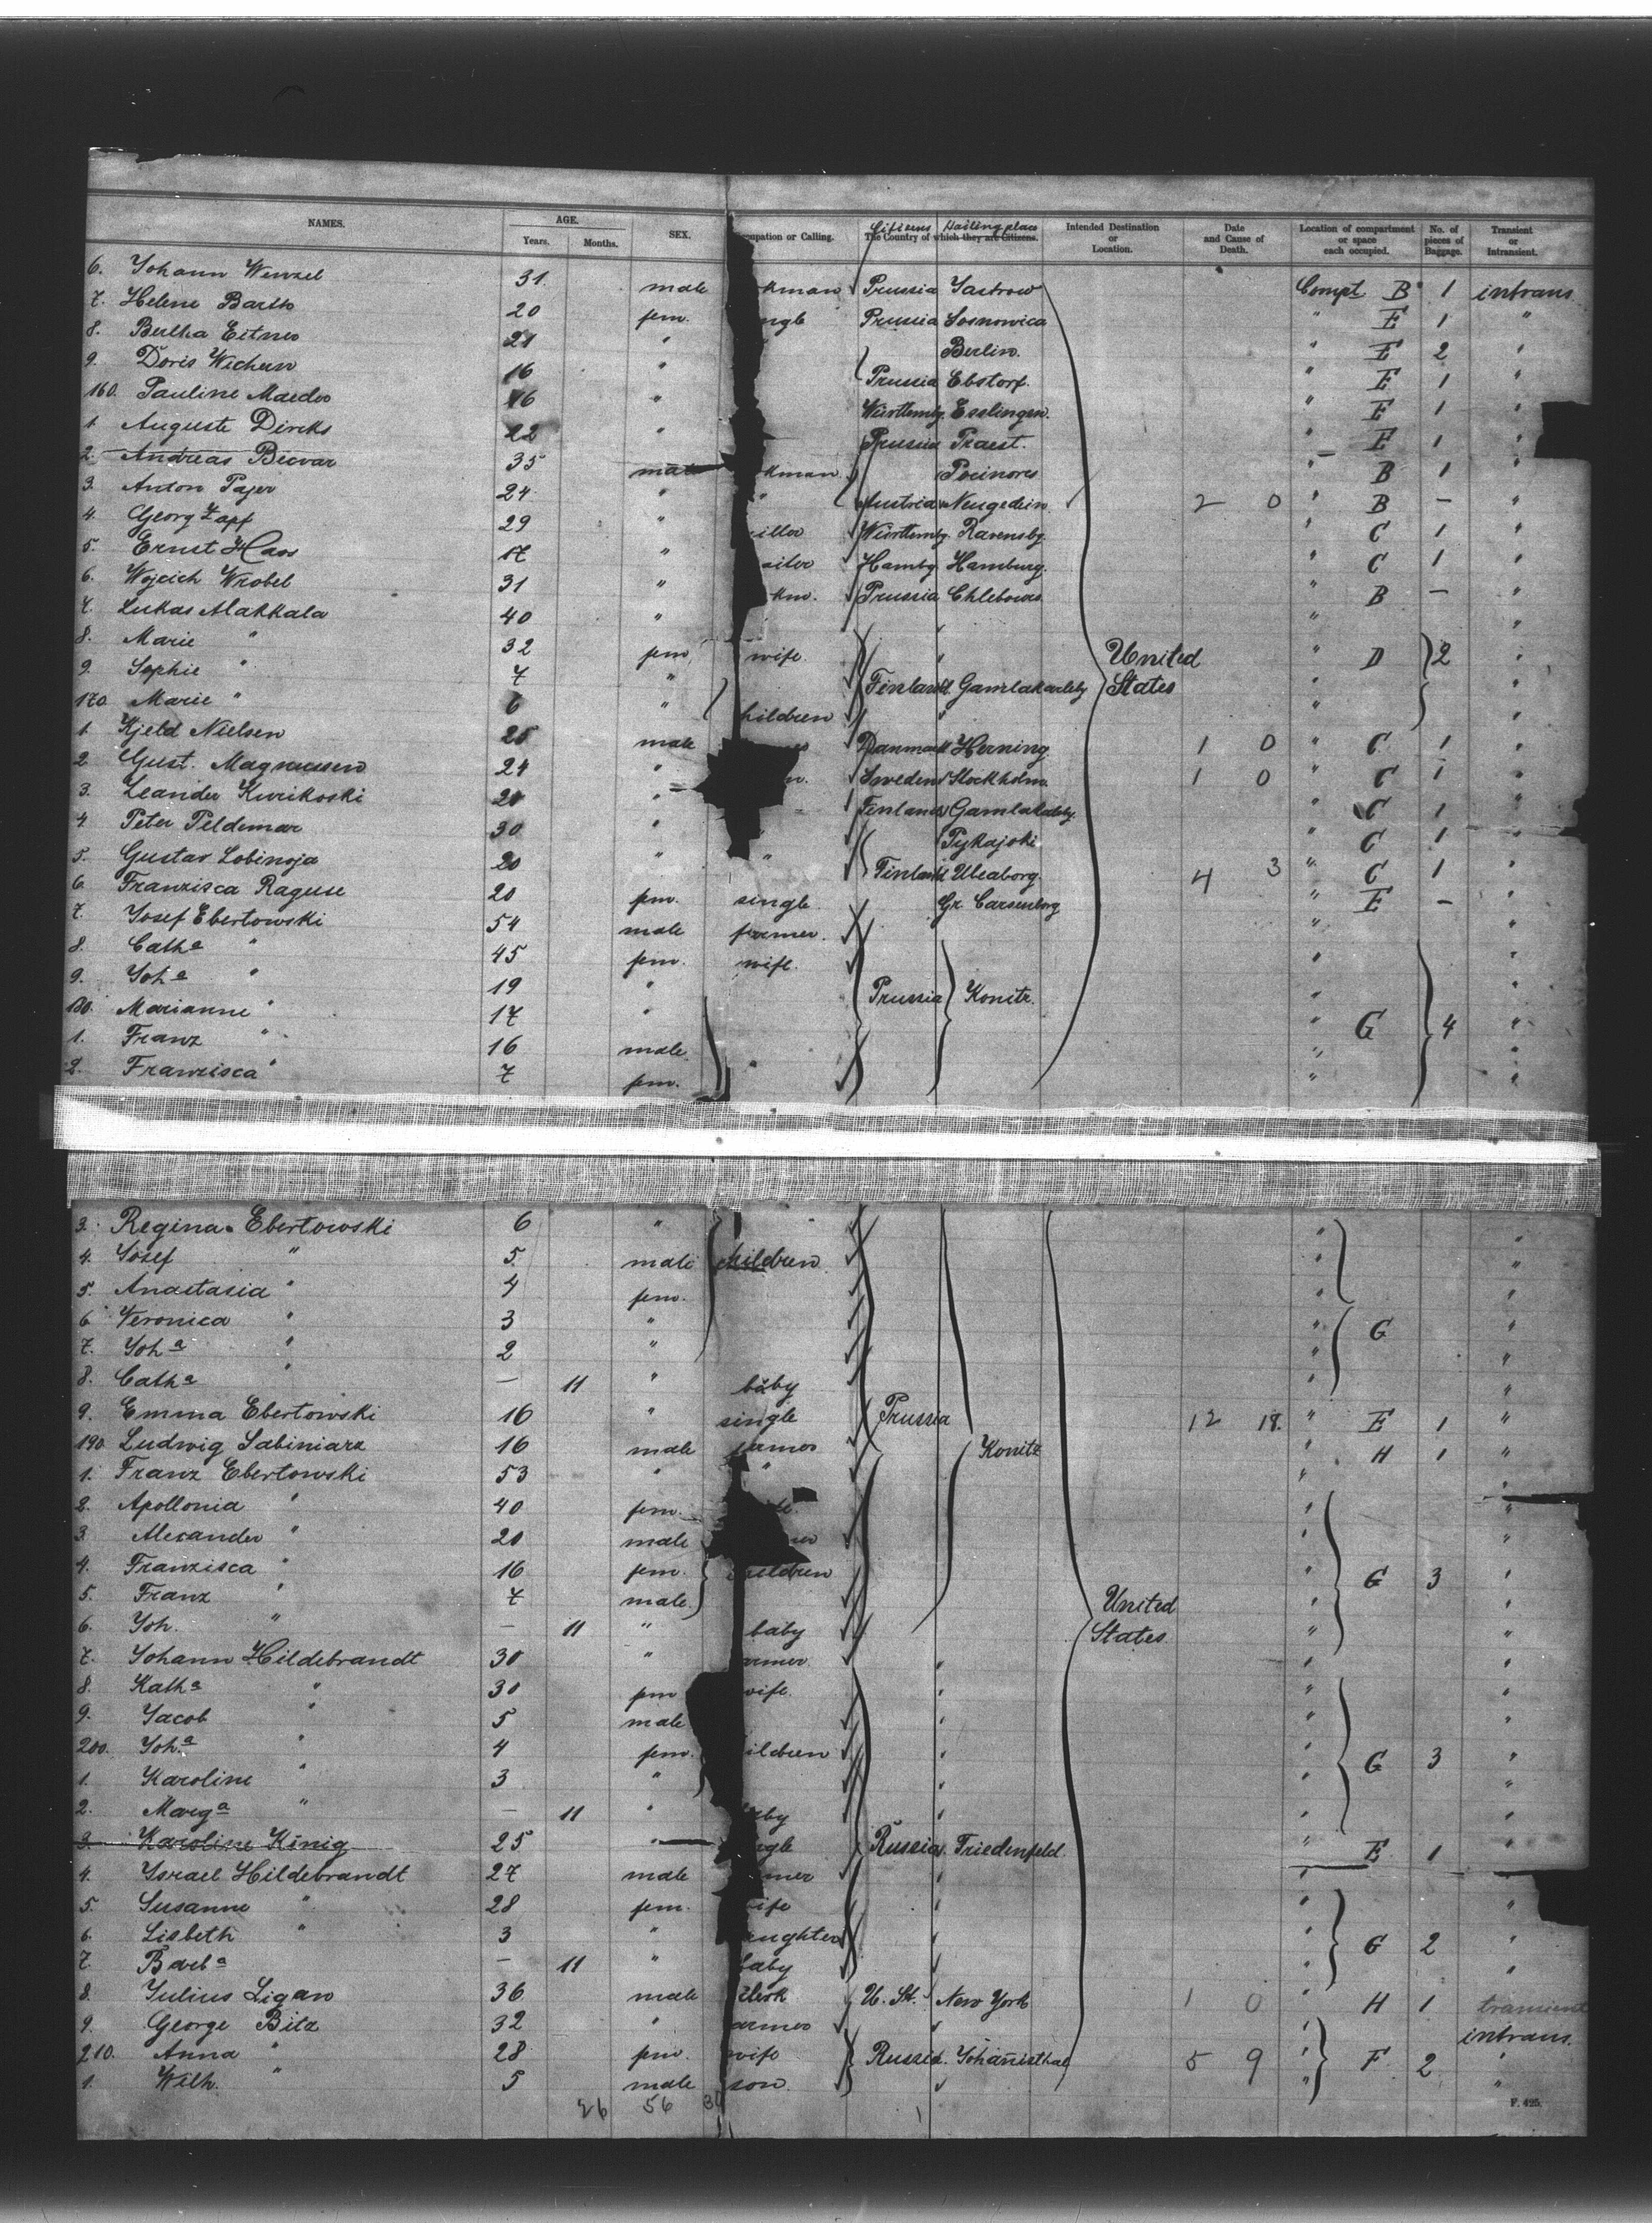 NAMES. AGE. Years. Months. SEX. cupation or Calling. Citizens Hailing place The Country of which they are Citizens. Intended Destination or Location. Date and Cause of Death. Location of compartment or space each occupied. No. of pieces of Baggage. Transient or Intransient.
6. Johann Wenzel 31. male kman Prussia Jastrow Compt B 1 intrans
7. Helene Barth 20 fem. ngle Prussia Sosnowica " E 1 "
8. Bertha Eitner 21 " Berlin. " E 2 "
9. Doris Wichern 16 " Prussia Ebstorf. " E 1 "
160. Pauline Maeder 16 " Württembg. Esslingen. " E 1 "
1 Auguste Dircks 22 " Prussia Traest. " E 1 "
2. Andreas Becvar 35 male kman " B 1 "
3. Anton Pajer 24 " " Austria Neugedein. 2 0 " B – "
4. Georg Zapf 29 " Württembg. Ravensbg. " C 1 "
5. Ernst Haas 17 " Hambg. Hamburg. " C 1 "
6. Wojcich Wrobel 31 " km. Prussia Chlebowo " B – "
7. Lukas Makkala 40 " " " "
8. Marie " 32 fem wife. " United " D 2 "
9. Sophie " 7 " Finland. Gamlakarleby States " "
170. Marie " 6 " hildren " " "
1. Kjeld Nielsen 25 male Danmark Herning 1 0 " C 1 "
2 Gust. Magnussen 24 " Sweden Stockholm. 1 0 " C 1 "
3. Leander Kurikoski 20 " Finland Gamlakarleby. " C 1 "
4 Peter Peldemar 30 " Pykajoki " C 1 "
5. Gustav Lobinoja 20 " " Finland Uleaborg. 4 3 " C 1 "
6. Franzisca Raguse 20 fem. single. Gr. Carsenborg " E – "
7. Josef Ebertowski 54 male farmer. " "
8. Catha " 45 fem. wife. " "
9. Joha " 19 " Prussia Konitz. " "
180. Marianne " 17 " " G 4 "
1. Franz " 16 male. " "
2. Franzisca " 7 fem. " " "
3. Regina Ebertowski 6 " " " "
4. Josef " 5. male children. " "
5. Anastasia " 4 fem. " "
6 Veronica " 3 " " G "
7. Joha " 2 " " "
8. Catha " – 11 " baby " "
9. Emma Ebertowski 16 " single Prussia 12 18. " E 1 "
190 Ludwig Sabiniarz 16 male farmer Konitz " H 1 "
1. Franz Ebertowski 53 " " " "
2. Apollonia " 40 fem. " "
3. Alexander " 20 male " "
4. Franzisca " 16 fem. children " G 3 "
5. Franz " 7 male. United " "
6. Joh. " – 11 " baby States. " "
7. Johann Hildebrandt 30 " armer. " " "
8. Katha " 30 fem wife. " " "
9. Jacob " 5 male " " "
200. Joha " 4 fem. ildren " " G 3 "
1. Karoline " 3 " " " "
2. Marga " – 11 " aby " " "
3. Karoline König 25 " ngle Russia. Friedenfeld. " E 1 "
4. Israel Hildebrandt 27 male rmer " " "
5. Susanne " 28 fem. ife " " "
6. Lisbeth " 3 " aughter " " G 2 "
7. Barba " – 11 " baby " " "
8. Julius Ligan 36 male Clerk U. St. New York 1 0 " H 1 transient
9. George Bitz 32 " armer " " intrans.
210. Anna " 28 fem. wife Russia. Johannisthal 5 9 " F 2 "
1. Wilh. " 5 male son. " " "
26 56
F. 425.